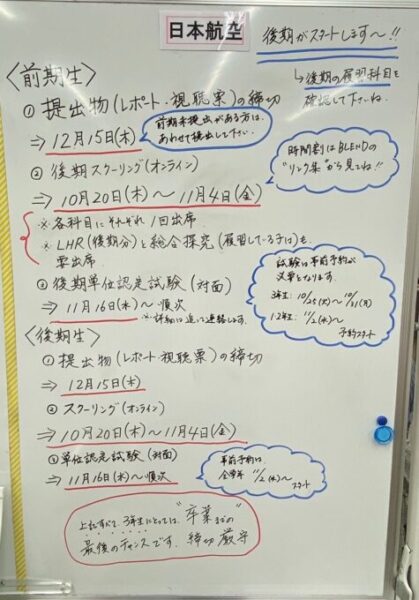 日本航空
後期がスタートします〜!!
↳後期の履習科目を
確認して下さいね.
〈前期生〉
① 提出物(レポート・視聴票)の締切
⇒ 12月15日(木)
前期未提出がある方は、
あわせて提出して下さい.
② 後期スクーリング(オンライン)
⇒ 10月20日(木)〜11月4日(金)
時間割はBLENDの
"リンク集"から見てね!!
※ 各科目にそれぞれ1回出席
※ LHR(後期分)と総合探究(履習している子は)も
要出席
③ 後期単位認定試験(対面)
⇒ 11月16日(水)〜順次
※詳細は追って連絡します.
試験は事前予約が
必要となります.
3年生: 10/25(火)〜10/31(月)
1.2年生: 11/2(水)〜
予約スタート
〈後期生〉
① 提出物(レポート・視聴票)の締切
⇒ 12月15日(木)
② スクーリング(オンライン)
⇒ 10月20日(木)〜11月4日(金)
③ 単位認定試験(対面)
⇒ 11月16日(水)〜順次
事前予約は
全学年 11/2(水)〜
スタート
上記すべて、3年生にとっては、"卒業までの
最後のチャンスです. 締切厳守